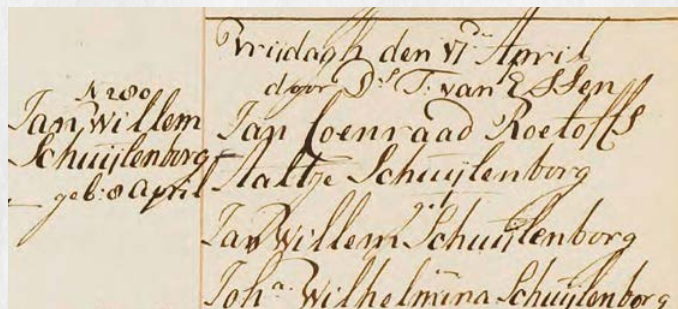 N 280
Jan Willem
Schuijlenborg
geb: 8 April
Vrijdagh den 17 April
door Ds T: van Essen
Jan Coenraad Roetoffs
Aaltje Schuijlenborg
get
Jan Willem Schuijlenborg
Joha. Wilhelmina Schuijlenborg